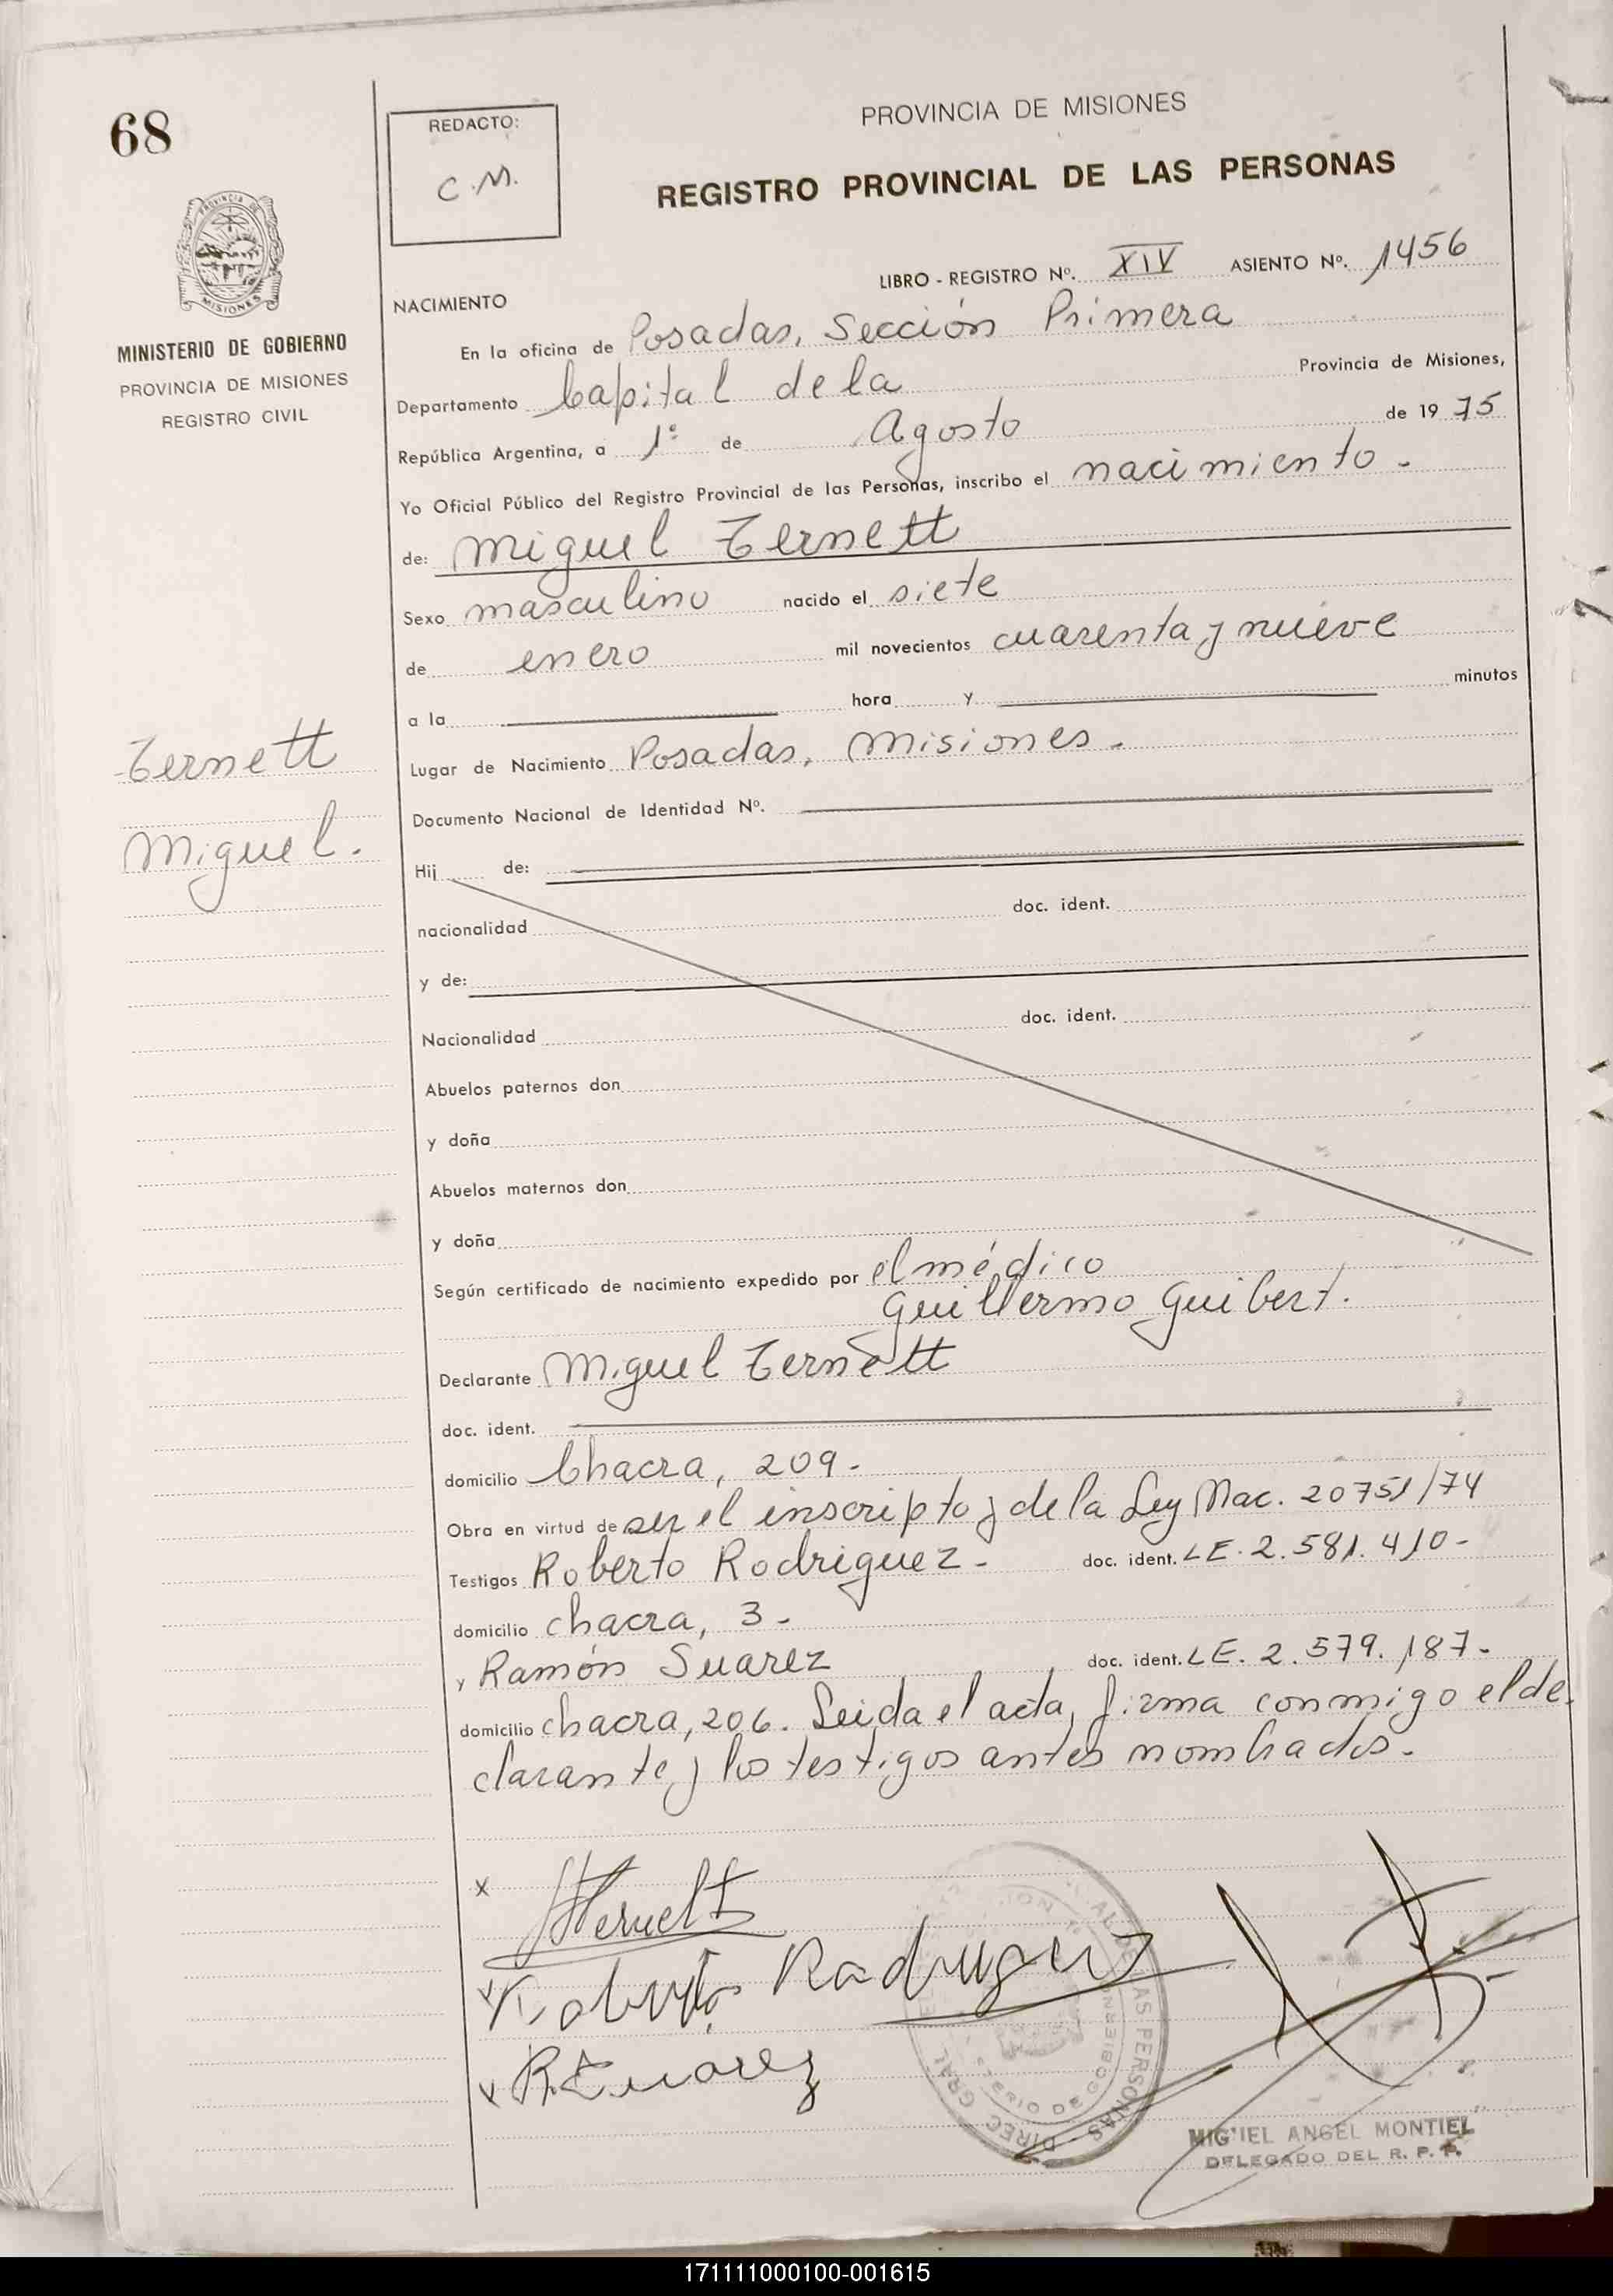 68
PROVINCIA DE MISIONES
REDACTO:
C.M.
REGISTRO PROVINCIAL DE LAS PERSONAS
LIBRO - REGISTRO Nº. XIV ASIENTO Nº. 1456
MINISTERIO DE GOBIERNO
PROVINCIA DE MISIONES
REGISTRO CIVIL
NACIMIENTO
En la oficina de Posadas, Sección Primera
Departamento Capital de la Provincia de Misiones,
República Argentina, a 1º de Agosto de 1975
Yo Oficial Público del Registro Provincial de las Personas, inscribo el nacimiento.
de: Miguel Ternett
Sexo masculino nacido el siete
de enero mil novecientos cuarenta y nueve
a la hora y minutos
Ternett
Miguel.
Lugar de Nacimiento Posadas, Misiones.
Documento Nacional de Identidad Nº.
Hij de:
nacionalidad doc. ident.
y de:
Nacionalidad doc. ident.
Abuelos paternos don
y doña
Abuelos maternos don
y doña
Según certificado de nacimiento expedido por el médico
Guillermo Guibert.
Declarante Miguel Ternett
doc. ident.
domicilio Chacra, 209.
Obra en virtud de ser el inscripto y de la Ley Nac. 20751/74
Testigos Roberto Rodriguez - doc. ident. LE. 2.581.410-
domicilio chacra, 3-
y Ramón Suarez doc. ident. LE. 2.579.187-
domicilio chacra, 206. Leida el acta, firma conmigo el de.
clarante y los testigos antes nombrados.
x
x Roberto Rodriguez
x R. Suarez
DIREC. GRAL. DE LAS PERSONAS
MINISTERIO DE GOBIERNO
MIGUEL ANGEL MONTIEL
DELEGADO DEL R. P. P.
171111000100-001615